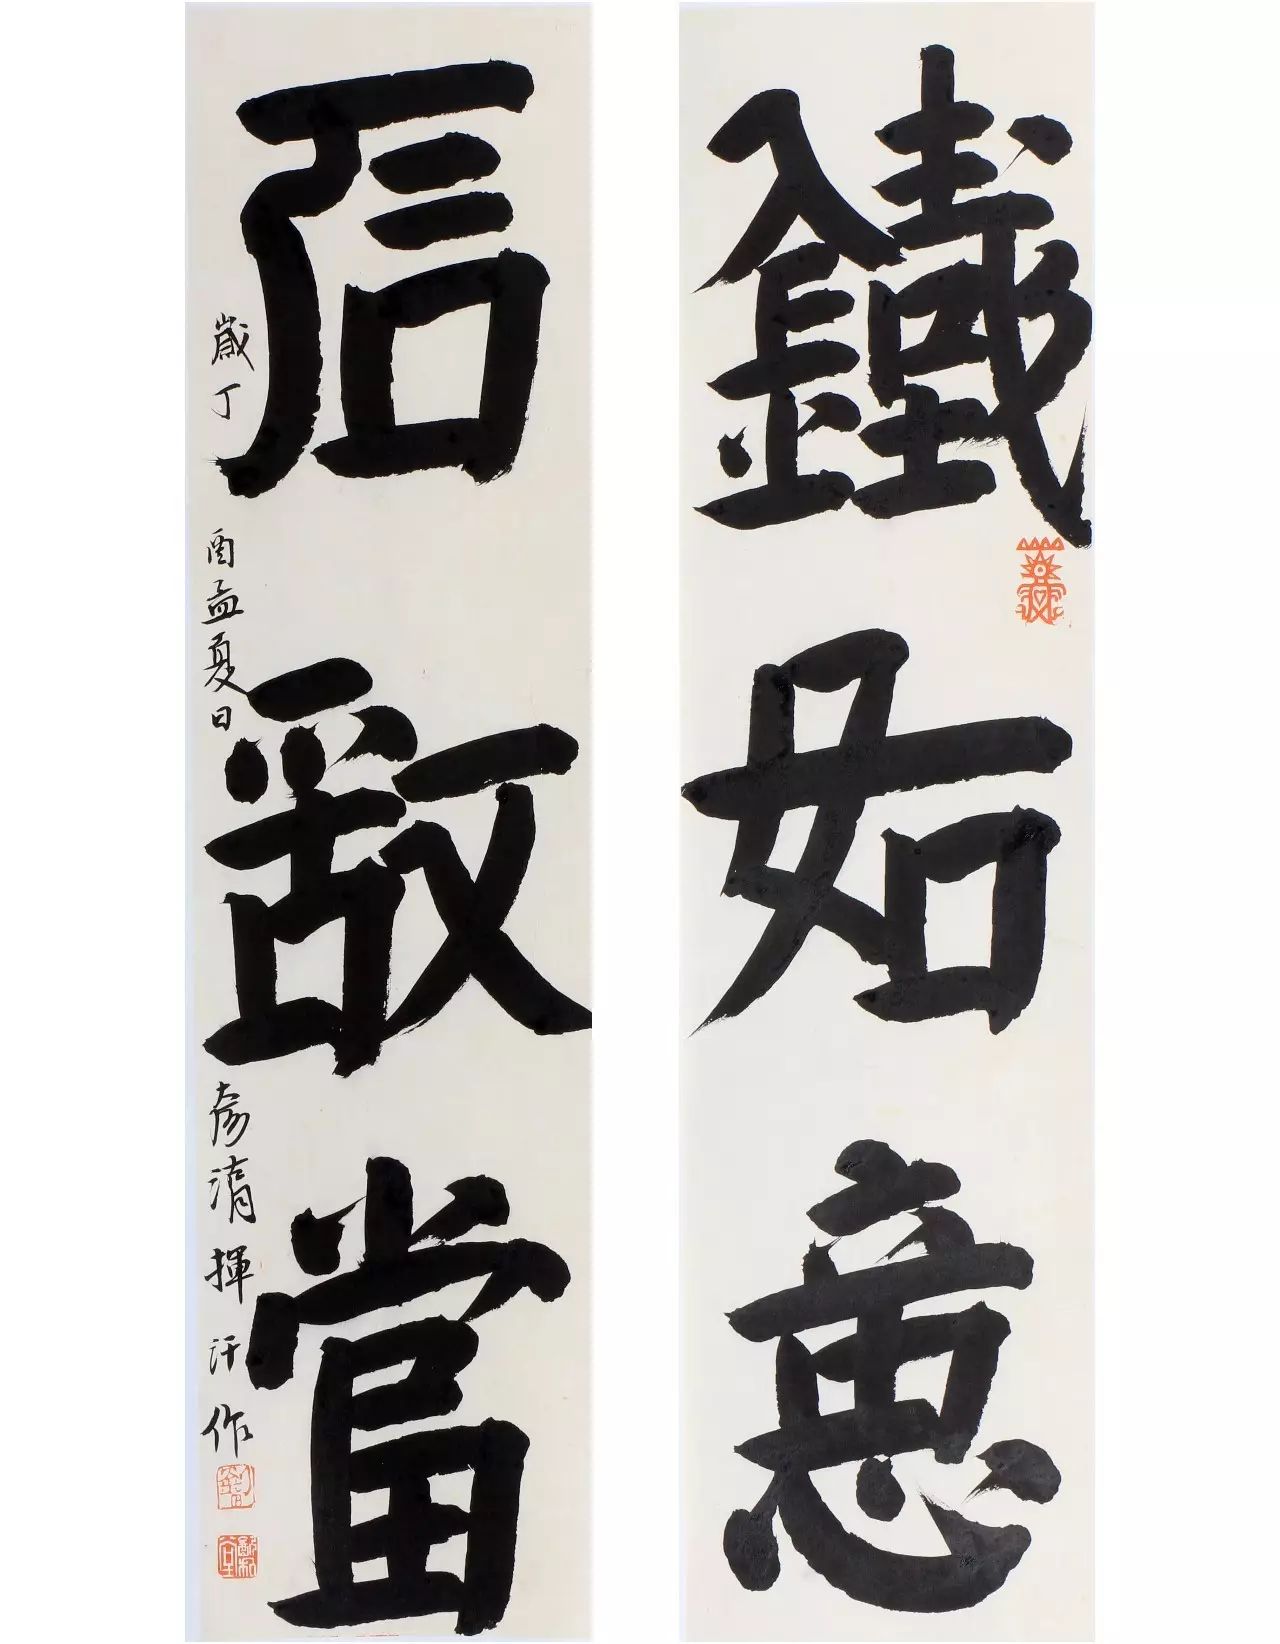 鐵如意
石敢當
歲丁酉孟夏日 揮汗作